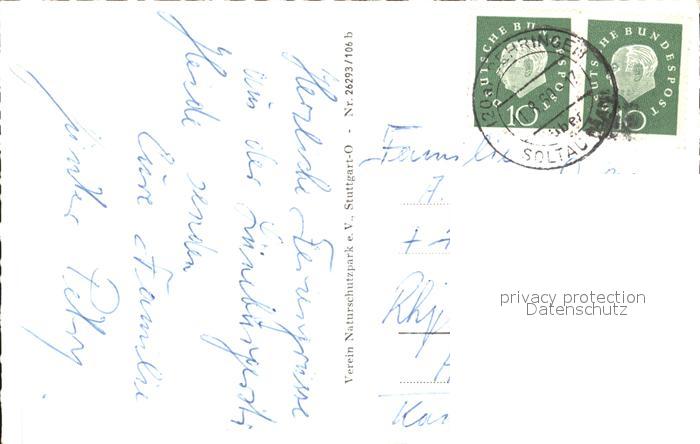 Herzliche Feriengrüsse
aus der Lüneburger
Heide senden
Eure Familie
Günter Petry.
Verein Naturschutzpark e. V., Stuttgart-O - Nr. 26293/106 b
DEUTSCHE BUNDESPOST
10
DEUTSCHE BUNDESPOST
10
über
SOLTAU
Familie
privacy protection
Datenschutz